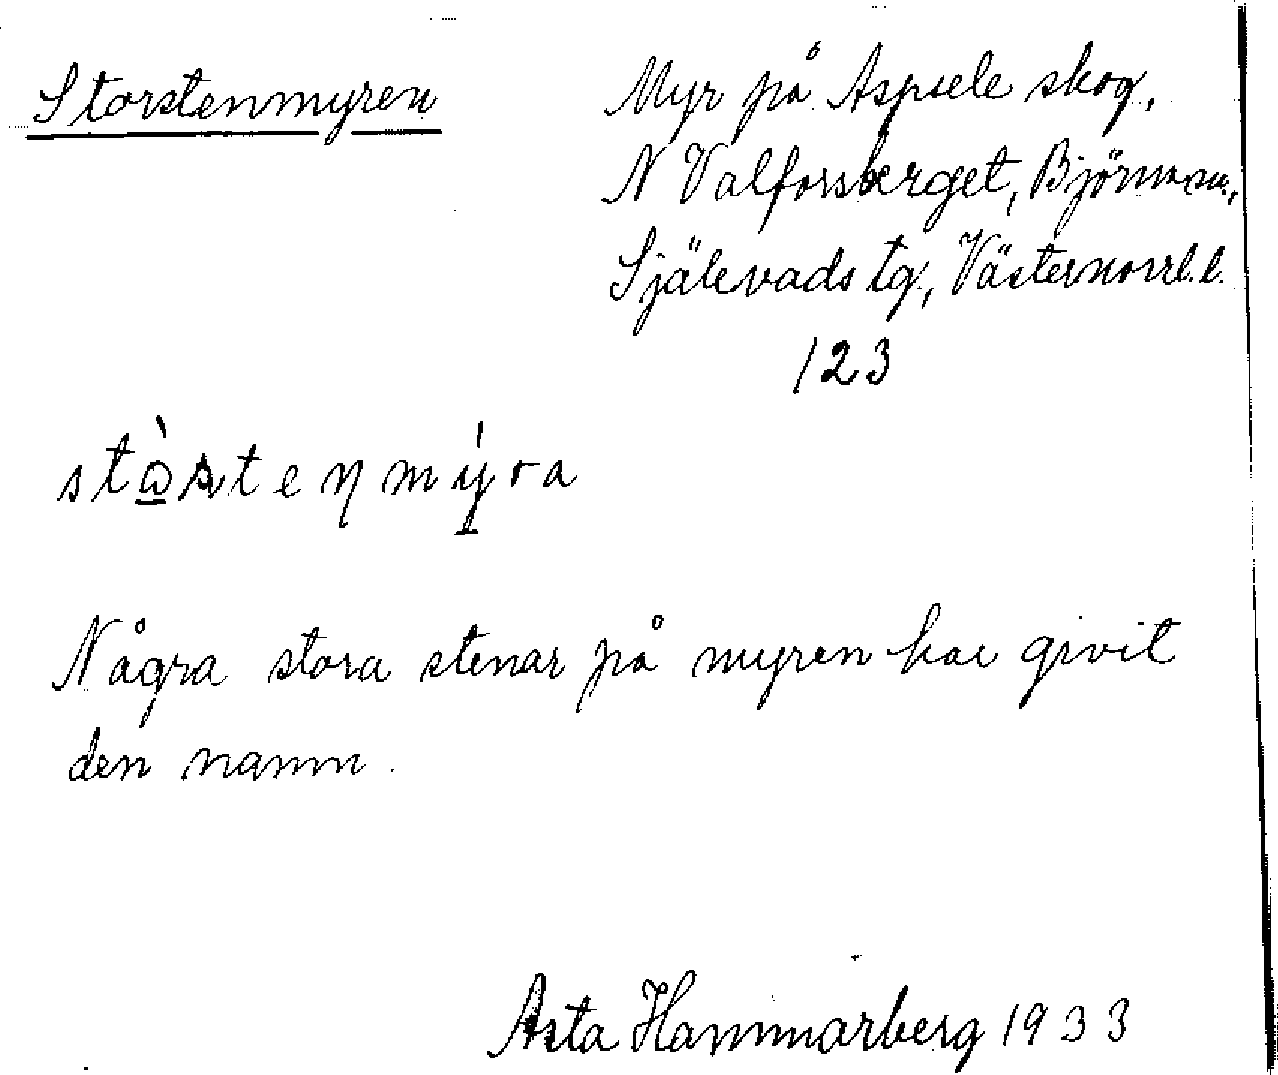 Storstenmyren
Myr på Aspsele skog,
N Valforsberget, Björna sn,
Själevads tg, Västernorrl. l.
123
stɷ̀stenmýra
Några stora stenar på myren har givit
den namn.
Asta Hammarberg 1933